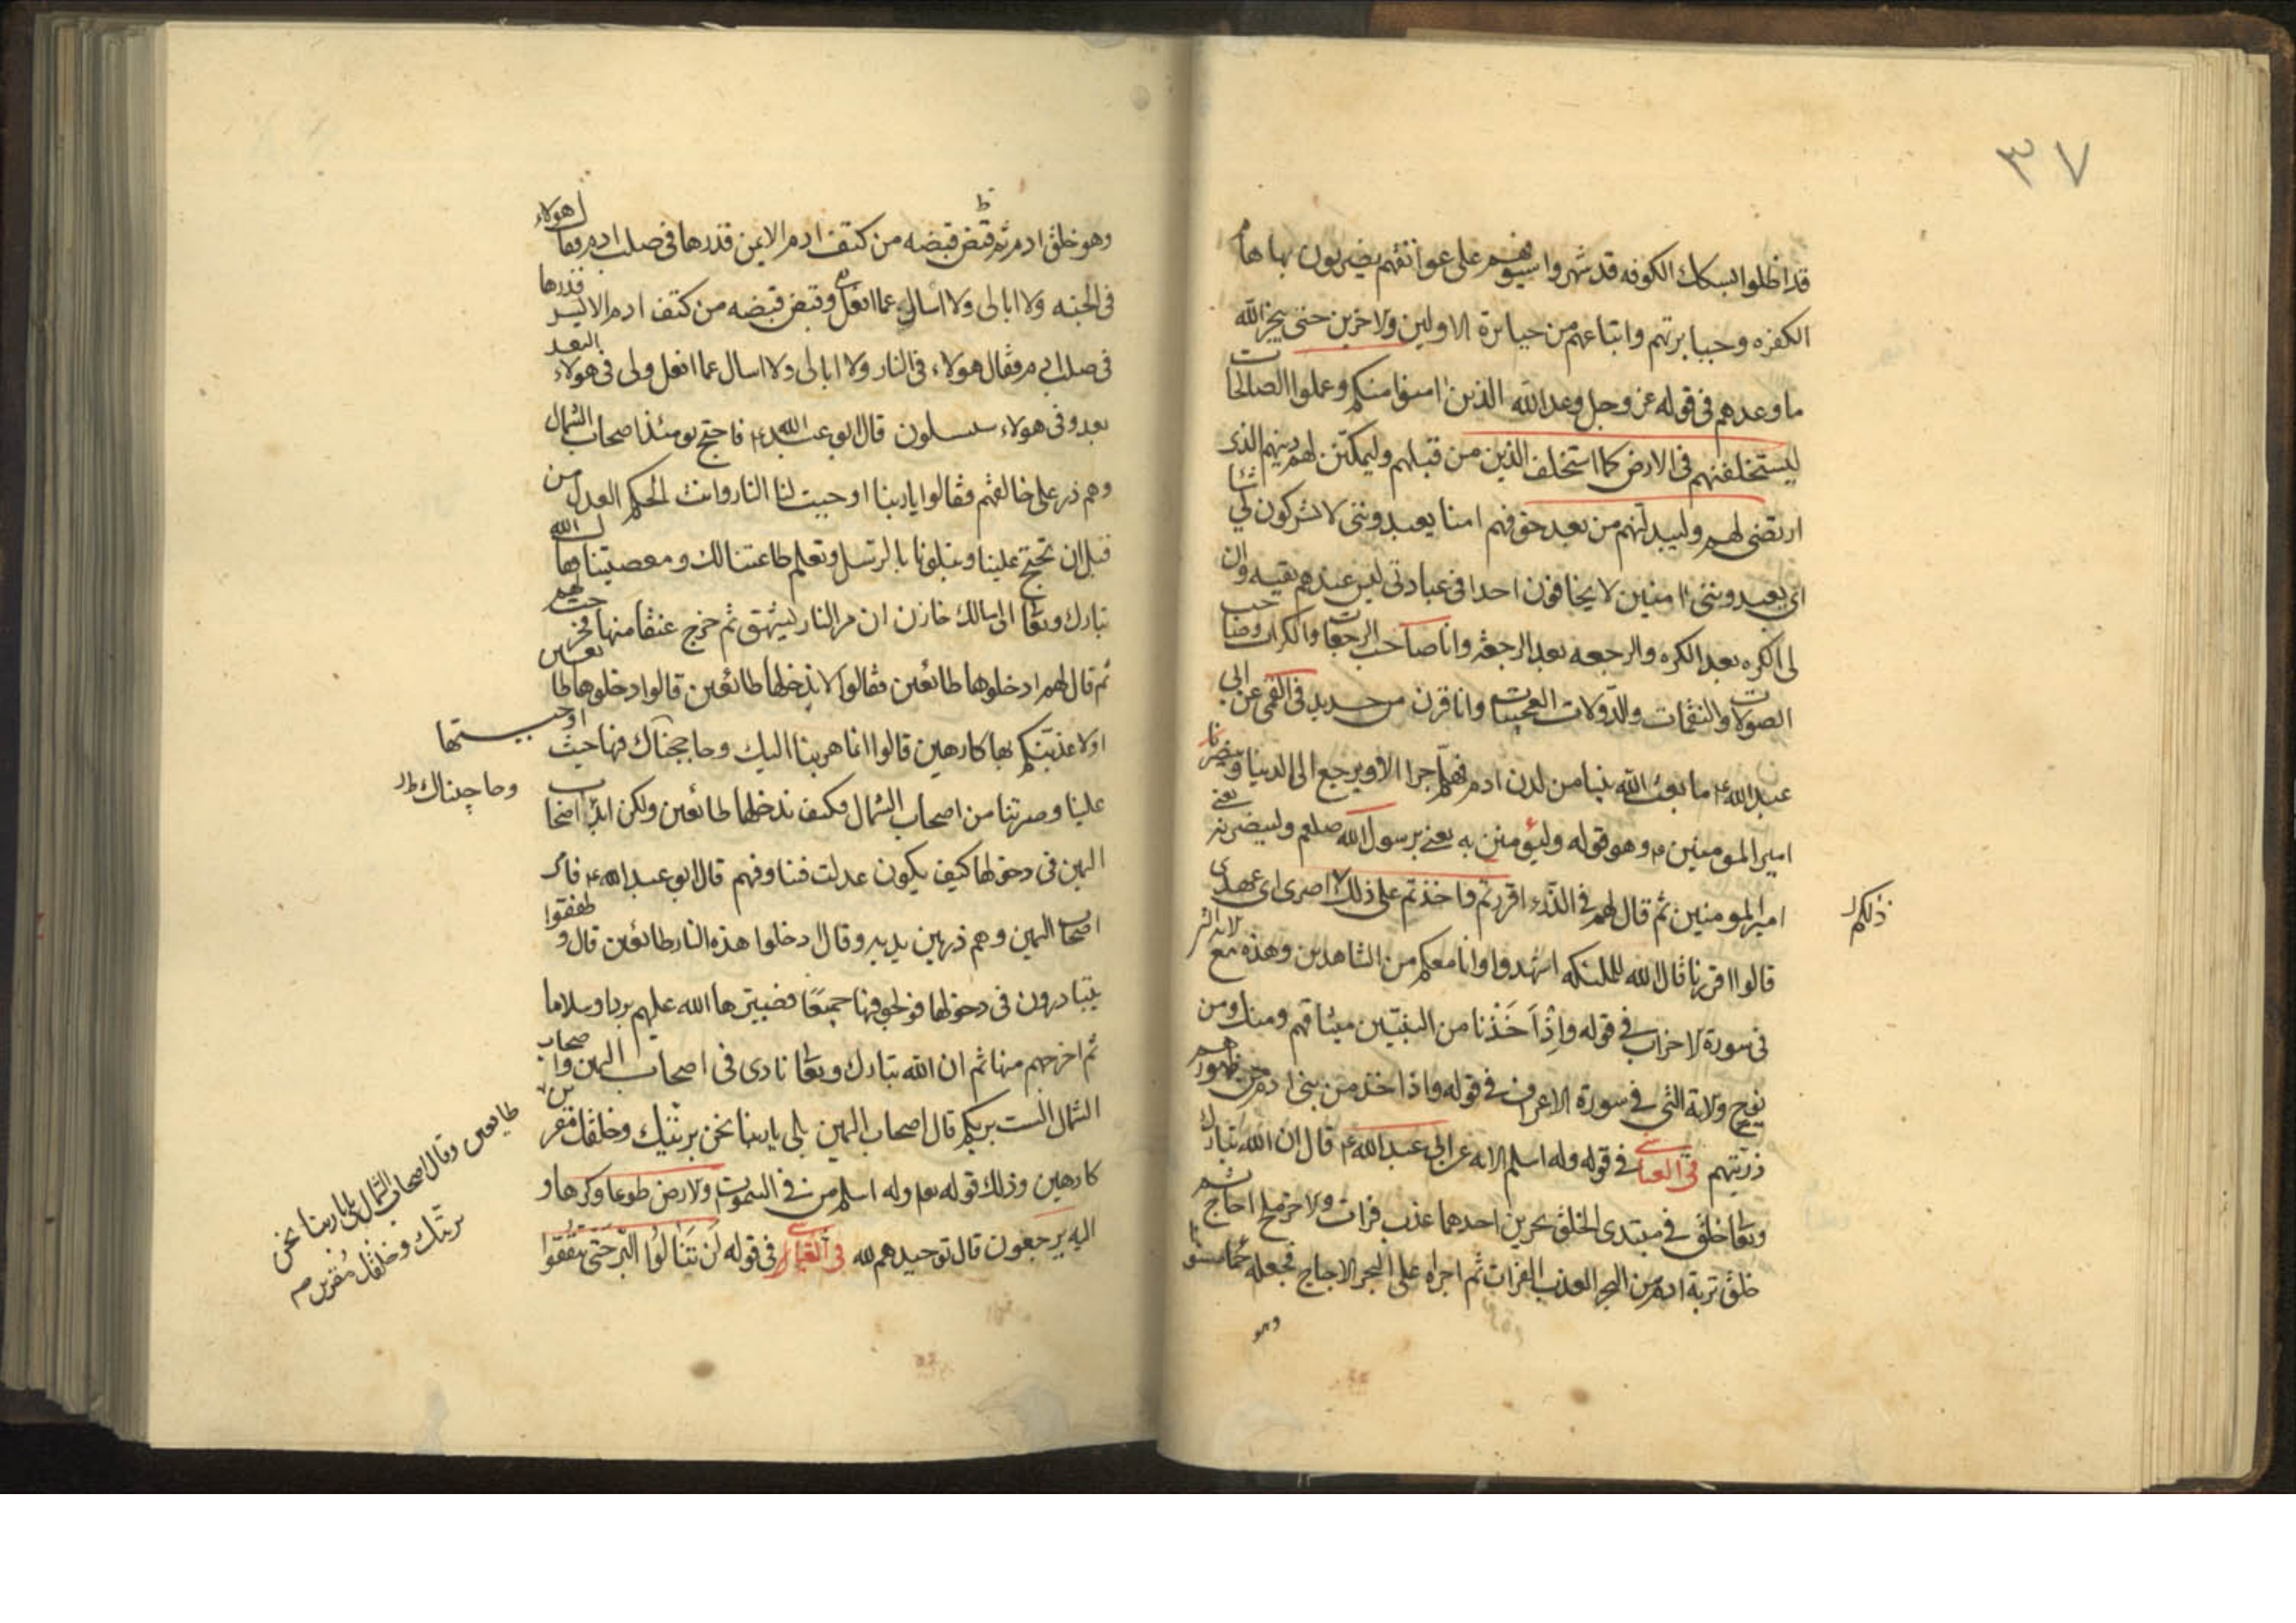 ٣٧
قد اظلوا بسكك الكوفه قد شهروا سيوفهم على عواتقهم يضربون بها هام
الكفره وجبابرتهم واتباعهم من جبابرة الاولين والاخرين حتى ينجز الله
ما وعدهم فى قوله عز وجل وعد الله الذين امنوا منكم وعملوا الصالحات
ليستخلفنهم فى الارض كما استخلف الذين من قبلهم وليمكنن لهم دينهم الذى
ارتضى لهم وليبدلنهم من بعد خوفهم امنا يعبدوننى لا يشركون بى شئا
اى يعبدوننى امنين لا يخافون احدا فى عبادتى ليس عندهم تقيه وان
لى الكره بعد الكره والرجعه بعد الرجعه وانا صاحب الرجعات والكرات وصاحب
الصولات والنقمات والدولات العجيبات وانا قرن من حديد فى القمى عن ابى
عبد الله ع ما بعث الله نبيا من لدن ادم فهلم جرا الا ويرجع الى الدنيا وينصر
امير المومنين ع وهو قوله وليؤمنن به يعنى برسول الله صلعم ولينصرنه يعنى
امير المومنين ثم قال لهم فى الذر ءاقررتم واخذتم على ذلك اصرى اى عهدى
ذلكم
قالوا اقررنا قال الله للملئكه اشهدوا وانا معكم من الشاهدين وهذه مع
فى سورة الاحزاب فى قوله وإذ أخذنا من النبيين ميثاقهم ومنك ومن
نوح ولاية التى فى سورة الاعراف فى قوله واذ اخذ من بنى ادم من ظهورهم
ذريتهم فى العياشى فى قوله وله اسلم الايه عن ابى عبد الله ع قال ان الله تبارك
وتعا خلق فى مبتدى الخلق بحرين احدهما عذب فرات والاخر ملح اجاج ثم
خلق تربة ادم من البحر العذب الفرات ثم اجراه على البحر الاجاج فجعله حمأ مسنونا
وهو
وهو خلق ادم ثم قبض قبضه من كتف ادم الايمن فذرها فى صلب ادم فقال هولاء
فى الجنه ولا ابالى ولا اسال عما افعل وقبض قبضه من كتف ادم الايسر فذرها
فى صلب ادم فقال هولاء فى النار ولا ابالى ولا اسال عما افعل ولى فى هولاء البعد
بعد وفى هولاء سيسلون قال ابو عبد الله ع فاحتج يومئذ اصحاب الشمال
وهم ذر على خالقهم فقالوا يا ربنا اوجبت لنا النار وانت الحكم العدل من
قبل ان تحتج علينا وتبلونا بالرسل وتعلم طاعتنا لك ومعصيتنا فقال الله
تبارك وتعا الى مالك خازن ان مر النار ليشهق ثم خرج عنقا منها فخرجت لهم
ثم قال لهم ادخلوها طائعين فقالوا لا ندخلها طائعين قالوا ادخلوها طائعين
او لاعذبنكم بها كارهين قالوا انا هربنا اليك وحاججناك فيها حيث اوجبتها
وحاججناك
علينا وصيرتنا من اصحاب الشمال فكيف ندخلها طائعين ولكن ابدا اصحاب
اليمين فى دخولها كيف يكون عدلت فينا وفيهم قال ابو عبد الله ع فامر
اصحاب اليمين وهم ذر بين يديه وقال ادخلوا هذه النار طائعين قال وطفقوا
يتبادرون فى دخولها فولجوا فيها جميعا فصيرها الله عليهم بردا وسلاما
ثم اخرجهم منها ثم ان الله تبارك وتعا نادى فى اصحاب اليمين واصحاب
الشمال الست بربكم قال اصحاب اليمين بلى يا ربنا نحن بريتك وخلقك مقرين
طايعين وقال اصحاب الشمال بلى يا ربنا نحن
بريتك وخلقك مقرين
كارهين وذلك قوله تعا وله اسلم من فى السموات والارض طوعا وكرها و
اليه يرجعون قال توحيدهم لله فى العياشى فى قوله لن تنالوا البر حتى تنفقوا